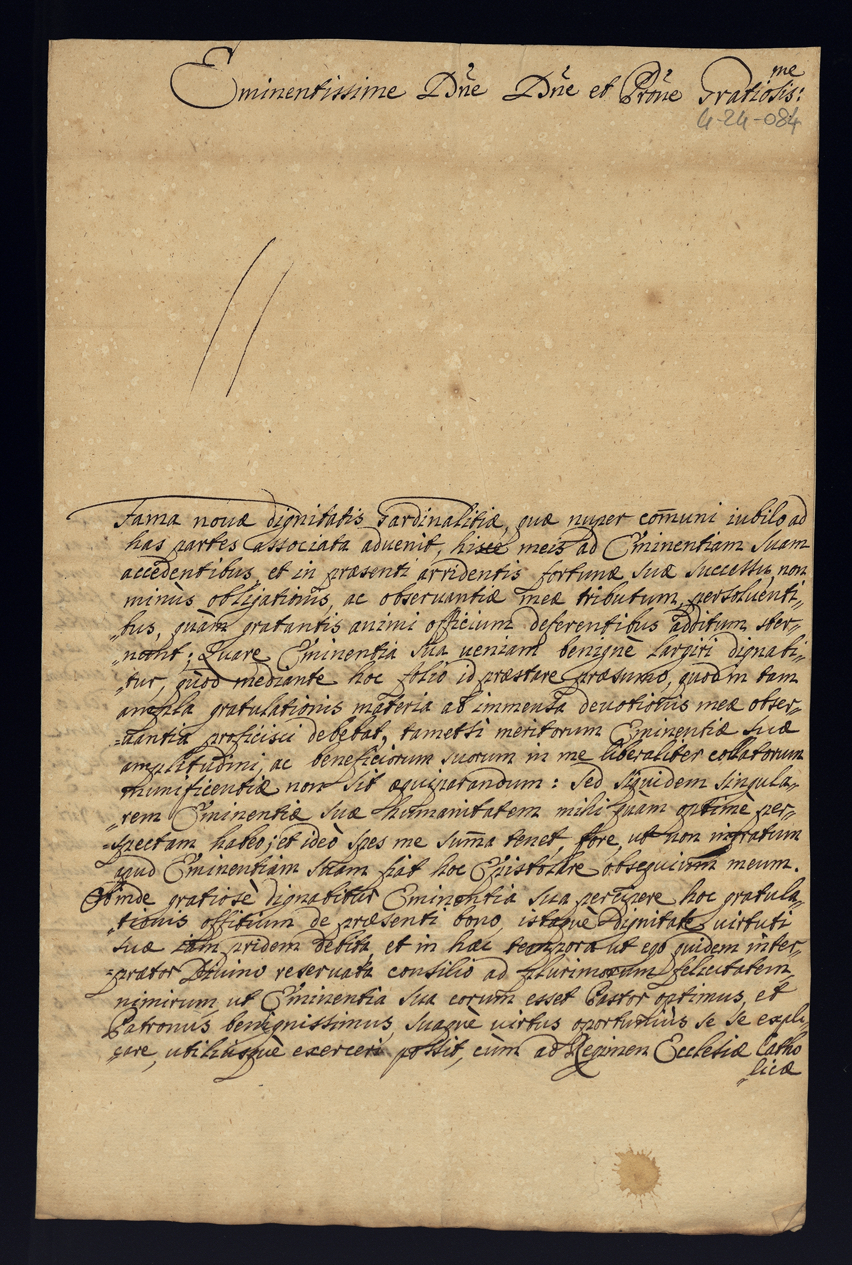 Eminentissime Dñe Dñe et Prõne Gratiosis:me
4-24-084
Fama novæ dignitatis Cardinalitiæ, quæ nuper com̄uni iubilo ad
has partes associata advenit, hisce meis ad Eminentiam Suam
accedentibus, et in præsenti arridentis fortunæ suæ successu, non
minus obligationis, ac observantiæ meæ tributum, persoluenti-
-bus, quàm gratantis animi officium deferentibus additum ster-
-nunt; Quare Eminentia Sua ueniam benignè largiri dignati-
-tur, quòd mediante hoc folio id præstare præsumo, quod in tam
ampla gratulationis materia ab immensa devotionis meæ obser-
-uantia proficisci debebat, tametsi meritorum Eminentiæ Suæ
amplitudini, ac beneficiorum suorum in me liberaliter collatorum
munificentiæ non sit æquiparandum: Sed siquidem singula-
-rem Eminentiæ Suæ humanitatem mihi quam optimè per-
-spectam habeo; et ideò spes me sum̄a tenet, fore, ut non ingratum
apud Eminentiam Suam fiat hoc Epistolare obsequium meum.
Obinde gratiosè dignabitur Eminentia Sua percipere hoc gratula-
-tionis offitium de præsenti bono, istaquè dignitate virtuti
suæ iam pridem debita, et in hæc tempora ut ego quidem inter-
-prætor Divino reservata consilio ad plurimorum felicitatem,
nimirum, ut Eminentia Sua eorum esset Pastor optimus, et
Patronus benignissimus, suaquè virtus oportuniùs se se expli-
-care, utiliùsquè exerceri possit, cùm ad Regimen Ecclesiæ Catho
-licæ